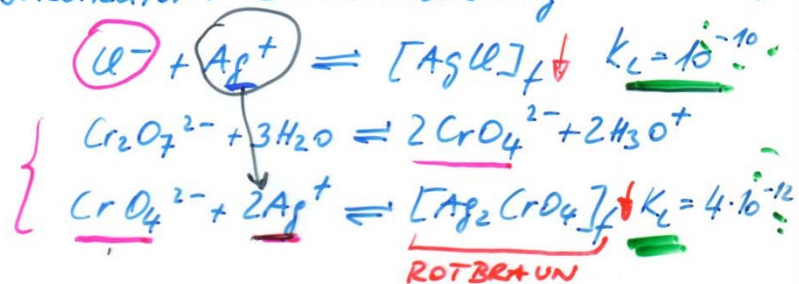 Cl⁻ + Ag⁺ ⇌ [AgCl]f ↓ KL = 10⁻¹⁰
Cr₂O₇²⁻ + 3H₂O ⇌ 2CrO₄²⁻ + 2H₃O⁺
CrO₄²⁻ + 2Ag⁺ ⇌ [Ag₂CrO₄]f ↓ KL = 4·10⁻¹²
ROTBRAUN